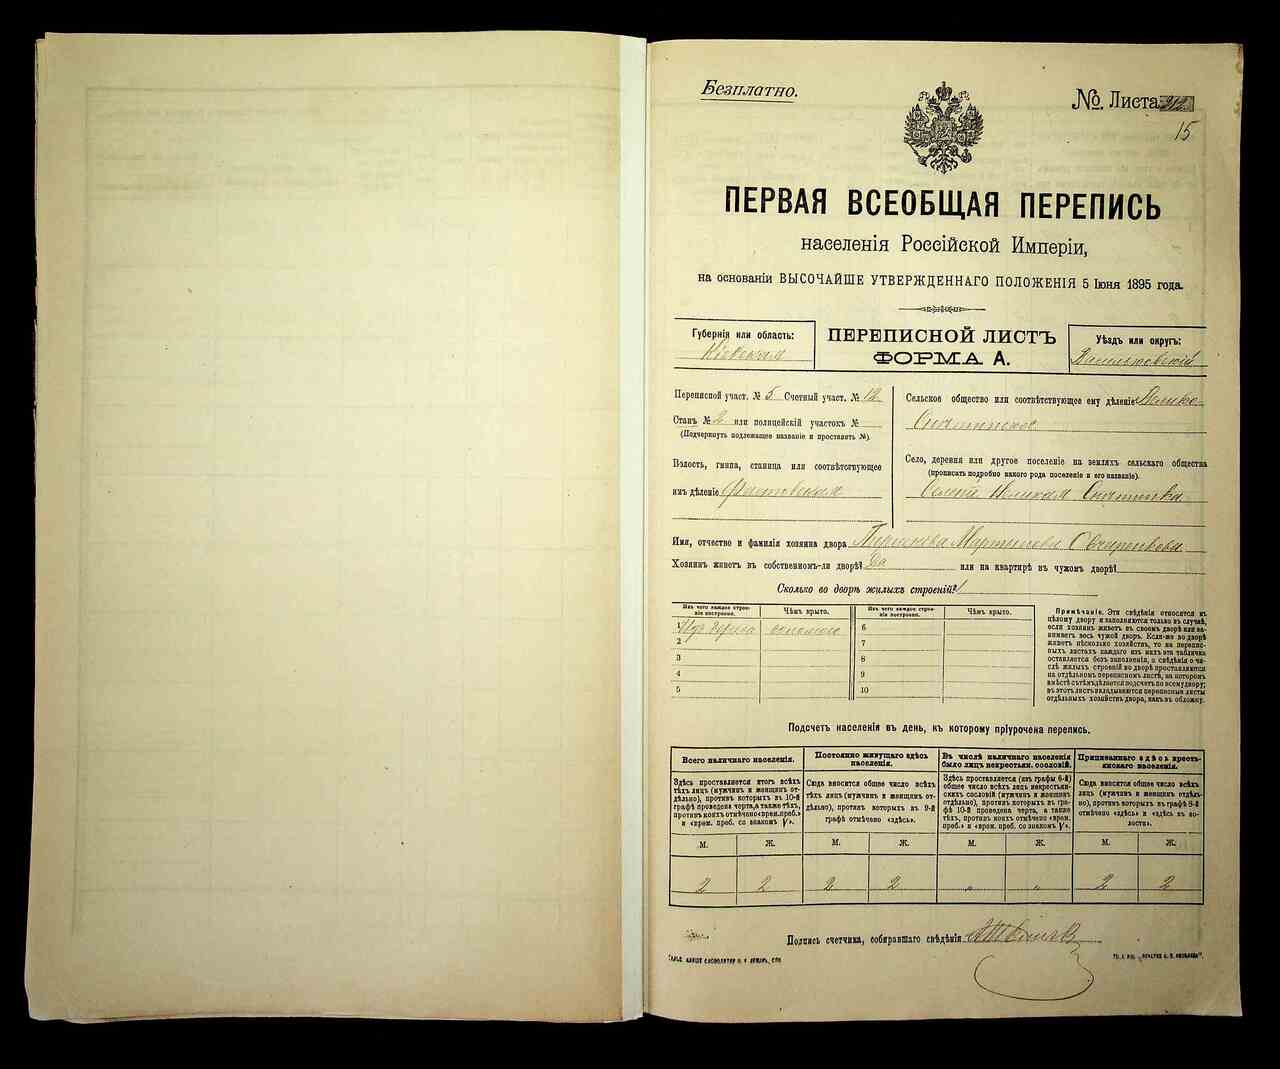 Безплатно.
№ Листа 212
15
ПЕРВАЯ ВСЕОБЩАЯ ПЕРЕПИСЬ
населенія Россійской Имперіи,
на основаніи ВЫСОЧАЙШЕ УТВЕРЖДЕННАГО ПОЛОЖЕНІЯ 5 Іюня 1895 года.
Губернія или область:
Кіевская
ПЕРЕПИСНОЙ ЛИСТЪ
ФОРМА А.
Уѣздъ или округъ:
Васильковскій
Переписной участ. № 5 Счетный участ. № 12
Станъ № 2 или полицейскій участокъ №
(Подчеркнуть подлежащее названіе и проставить №).
Волость, гмина, станица или соотвѣтствующее
имъ дѣленіе Фастовская
Сельское общество или соотвѣтствующее ему дѣленіе Велико-
Снитинское
Село, деревня или другое поселеніе на земляхъ сельскаго общества
(прописать подробно какого рода поселеніе и его названіе).
Великая Снитинка
Имя, отчество и фамилія хозяина двора Мартынова
Хозяинъ живетъ въ собственномъ-ли дворѣ? Да или на квартирѣ въ чужомъ дворѣ?
Сколько во дворѣ жилыхъ строеній? 1
Изъ чего каждое строеніе построено.
Чѣмъ крыто.
Изъ чего каждое строеніе построено.
Чѣмъ крыто.
1 Изъ дерева соломою
2
3
4
5
6
7
8
9
10
Примѣчаніе. Эти свѣдѣнія относятся къ
цѣлому двору и заполняются только въ случаѣ,
если хозяинъ живетъ въ своемъ дворѣ или занимаетъ
весь чужой дворъ. Если-же во дворѣ
живетъ нѣсколько хозяйствъ, то на переписныхъ
листахъ каждаго изъ нихъ эта табличка
оставляется безъ заполненія, а свѣдѣнія о числѣ
жилыхъ строеній во дворѣ проставляются
на отдѣльномъ переписномъ листѣ, на которомъ
вмѣстѣ съ тѣмъ дѣлается подсчетъ по всему двору;
въ этотъ листъ вкладываются переписные листы
отдѣльныхъ хозяйствъ двора, какъ въ обложку.
Подсчетъ населенія въ день, къ которому пріурочена перепись.
Всего наличнаго населенія.
Постоянно живущаго здѣсь населенія.
Въ числѣ наличнаго населенія было лицъ некрестьян. сословій.
Приписаннаго здѣсь крестьянскаго населенія.
Здѣсь проставляется итогъ всѣхъ
тѣхъ лицъ (мужчинъ и женщинъ отдѣльно),
противъ которыхъ въ 10-й
графѣ проведена черта, а также тѣхъ,
противъ коихъ отмѣчено «врем. преб.»
и «врем. преб. со знакомъ V».
Сюда вносится общее число всѣхъ
тѣхъ лицъ (мужчинъ и женщинъ отдѣльно),
противъ которыхъ въ 9-й
графѣ отмѣчено «здѣсь».
Здѣсь проставляется (изъ графы 6-й)
общее число всѣхъ лицъ некрестьянскихъ
сословій (мужчинъ и женщинъ
отдѣльно), противъ которыхъ въ графѣ
10-й проведена черта, а также
тѣхъ, противъ коихъ отмѣчено «врем.
преб.» и «врем. преб. со знакомъ V».
Сюда вносится общее число всѣхъ
лицъ (мужчинъ и женщинъ отдѣльно),
противъ которыхъ въ графѣ 8-й
отмѣчено «здѣсь» и «здѣсь въ волости».
М. Ж. М. Ж. М. Ж. М. Ж.
2 2 2 2 " " 2 2
Подпись счетчика, собиравшаго свѣдѣнія